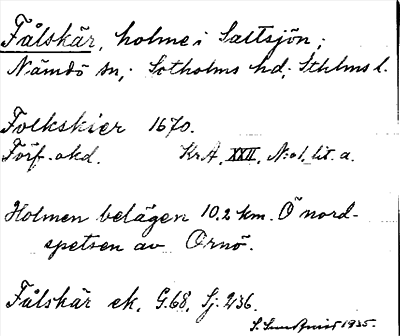 Fålskär, holme i Saltsjön;
Nämdö sn, Sotholms hd, Sthlms l.
Folkskier 1670.
Förf. okd. Kr.A. XXII, N:o 1, lit. a.
Holmen belägen 10,2 km. Ö nord-
spetsen av Ornö.
Fålskär ek. G.68, Sj. 236.
S. Sundqvist 1935.